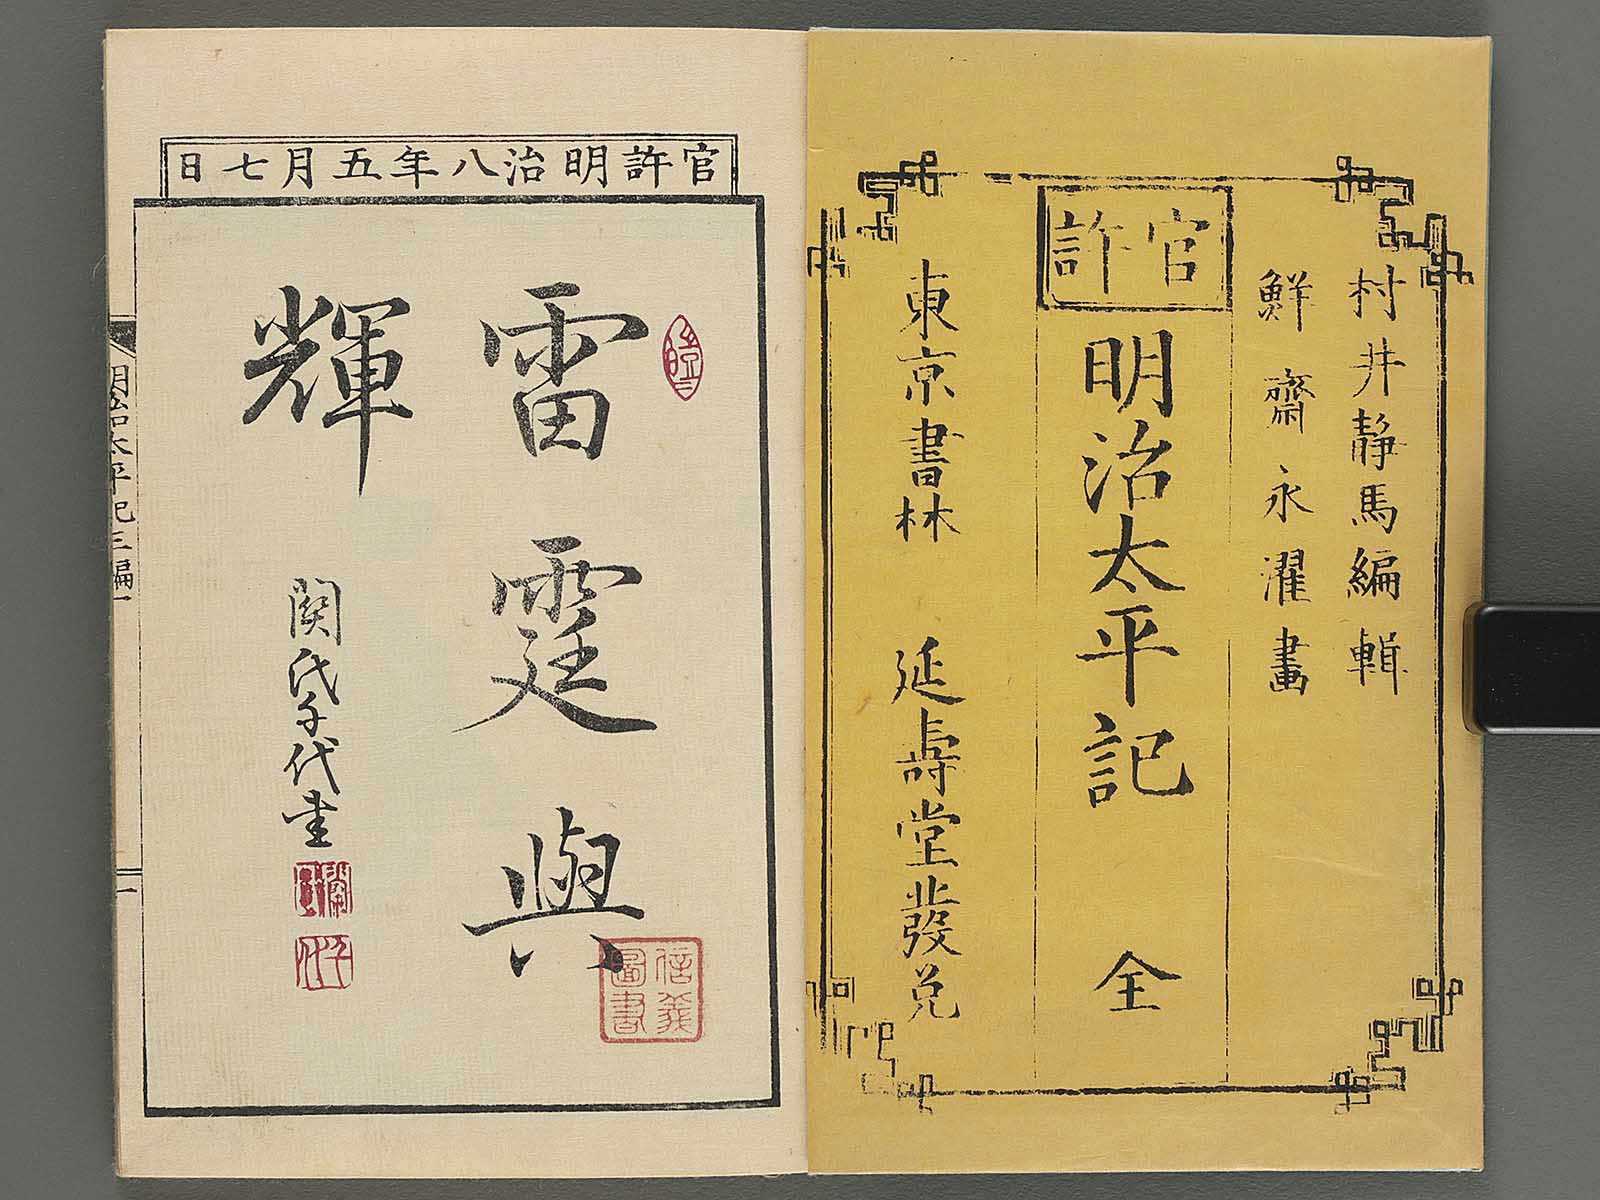 村井静馬編輯
鮮齋永濯畫
官許
明治太平記 全
東京書林 延壽堂發兌
官許明治八年五月七日
雷霆與
輝
関氏千代書
信義
圖書
明治太平記三編一
一